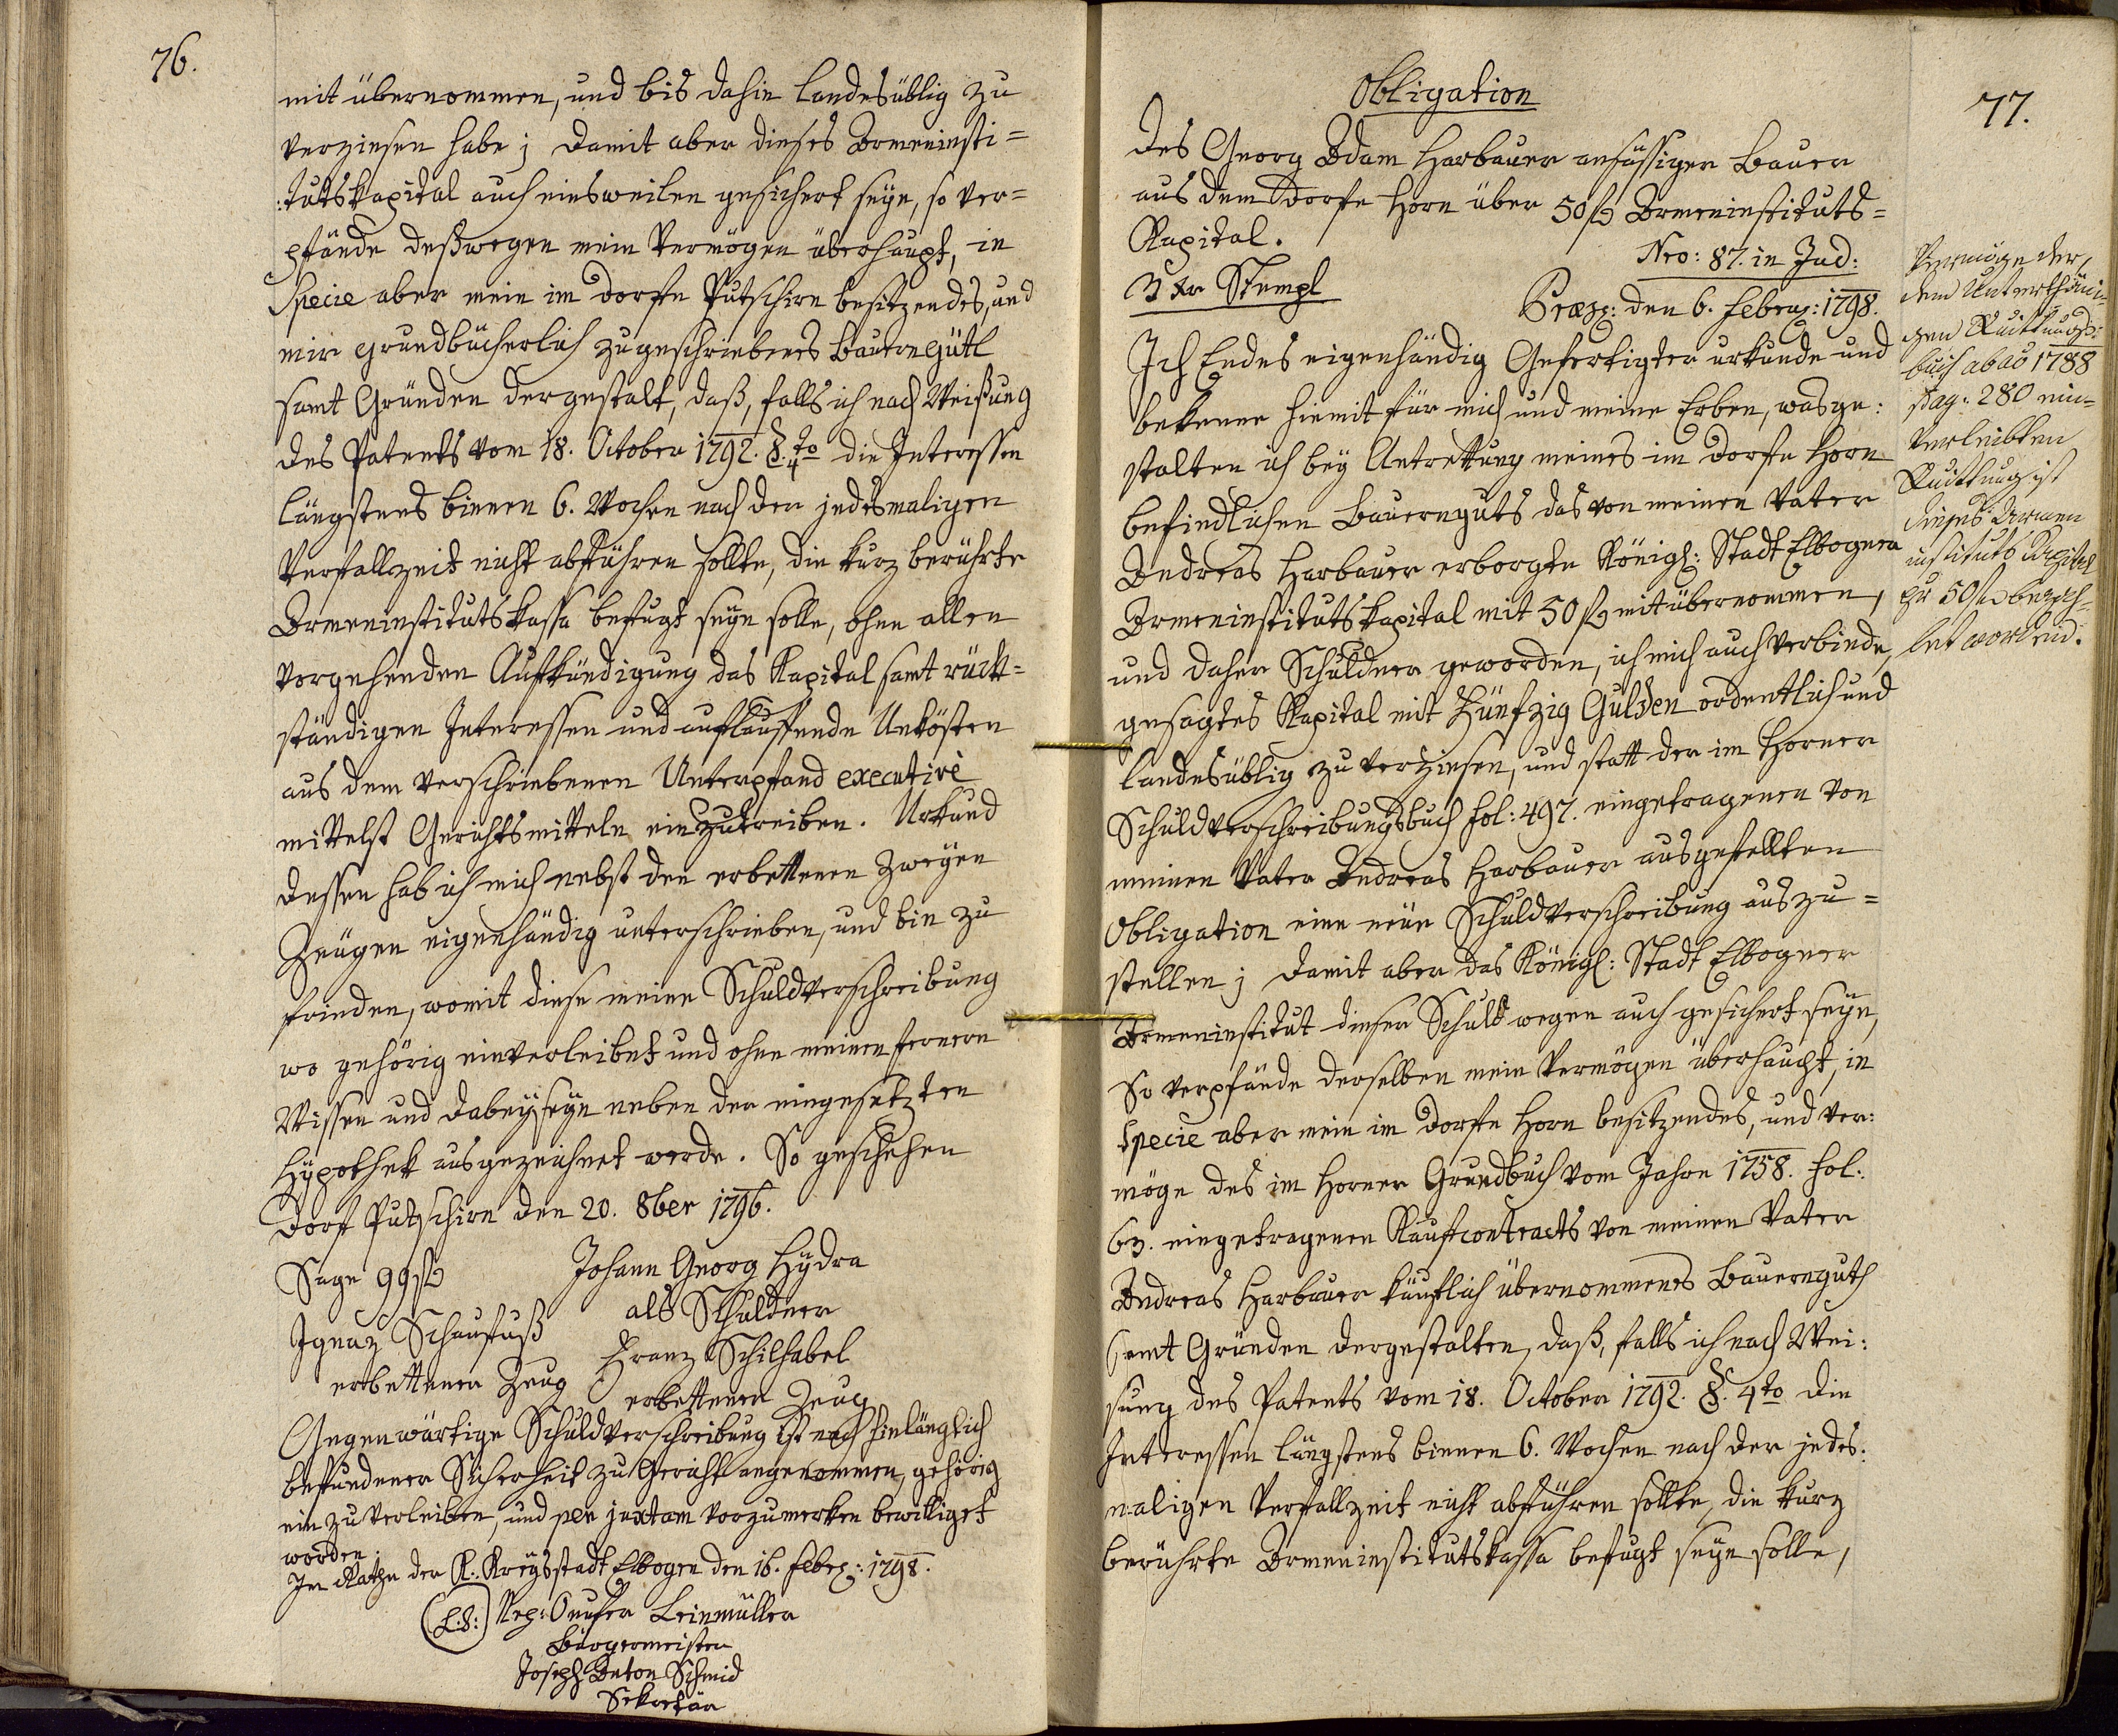 76.
mit übernommen, und bis dahin landesüblig zu
verzinsen habe; damit aber dieses Armeninsti=
:tutskapital auch einsweilen gesichert seye, so ver=
pfände deßwegen mein Vermögen überhaupt, in
Specie aber mein im Dorfe Putschirn besitzendes, und
mir grundbücherlich zugeschriebenes Bauerngütl
samt Gründen dergestalt, daß, falls ich nach Weißung
des Patents vom 18. October 1792. §. 4to die Interessen
längstens binnen 6. Wochen nach der jedesmaligen
Verfallzeit nicht abführen sollte, die kurz berührte
Armeninstitutskassa befugt seyn solle, ohne allen
vorgehenden Aufkündigung das Kapital samt rück=
ständigen Interessen und auflauffende Unkösten
aus dem verschriebenen Unterpfand executivè
mittelst Gerichtsmitteln einzutreiben. Urkund
dessen hab ich mich nebst den erbettenen zweyen
Zeugen eigenhändig unterschrieben, und bin zu
frieden, womit diese meine Schuldverschreibung
wo gehörig einverleibet und ohne meinen fernern
Wissen und dabeyseyn neben der eingesetzten
Hypothek ausgezeichnet werde. So geschehen
Dorf Putschirn den 20. 8ber 1796.
Sage 99 fl
Johann Georg Hydra
als Schuldner
Ignaz Schaufuß
erbettener Zeug
Franz Schilhabel
erbettener Zeug
Gegenwärtige Schuldverschreibung ist nach hinlänglich
befundener Sicherheit zu Gericht angenommen, gehörig
ein zu verleiben, und per juxtam vorzumerken bewilliget
worden.
Im Rathe der K: Kreysstadt Elbogen den 16. Febr: 1798.
(L.S:) Nep: Onufer Leinmüller
Bürgermeister
Joseph Anton Schmid
Sekretär
77.
Obligation
des Georg Adam Harbauer ansässigen Bauer
aus dem Dorfe Horn über 50 fl Armeninstituts=
Kapital.
Nro: 87. in Jud:
3 xr Stempl
Præs: den 6. Febru: 1798.
Ich Endes eigenhändig Gefertigter urkunde und
bekenne hiemit für mich und meine Erben, wasge:
stalten ich bey Antrettung meines im Dorfe Horn
befindlichen Bauernguts das von meinen Vater
Andreas Harbauer erborgte Königl: Stadt Elbogner
Armeninstitutskapital mit 50 fl mitübernommen,
und daher Schuldner geworden, ich mich auch verbinde,
gesagtes Kapital mit Fünfzig Gulden ordentlich und
landesüblig zu verzinsen, und statt der im Horner
Schuldverschreibungsbuch fol: 497. eingetragenen von
meinen Vater Andreas Harbauer ausgestellten
Obligation eine neue Schuldverschreibung auszu=
stellen; damit aber das Königl: Stadt Elbogner
Armeninstitut dieser Schuld wegen auch gesichert seye,
So verpfände derselben mein Vermögen überhaupt, in
Specie aber mein im Dorfe Horn besitzendes, und ver:
möge des im Horner Grundbuch vom Jahre 1758. fol:
63. eingetragenen Kaufcontracts von meinen Vater
Andreas Harbauer käuflich übernommenes Bauernguth
samt Gründen dergestalten, daß, falls ich nach Wei:
sung des Patents vom 18. October 1792. §. 4to die
Interessen längstens binnen 6. Wochen nach der jedes:
maligen Verfallzeit nicht abführen sollte, die kurz
berührte Armeninstitutskassa befugt seyn solle,
Vermöge der,
dem Unterthäni=
gen Quittungs=
buch abao 1788
pag: 280 ein=
verleibten
Quittung ist
dieses Armen
instituts Kapital
zu 50 fl bezah=
let worden.